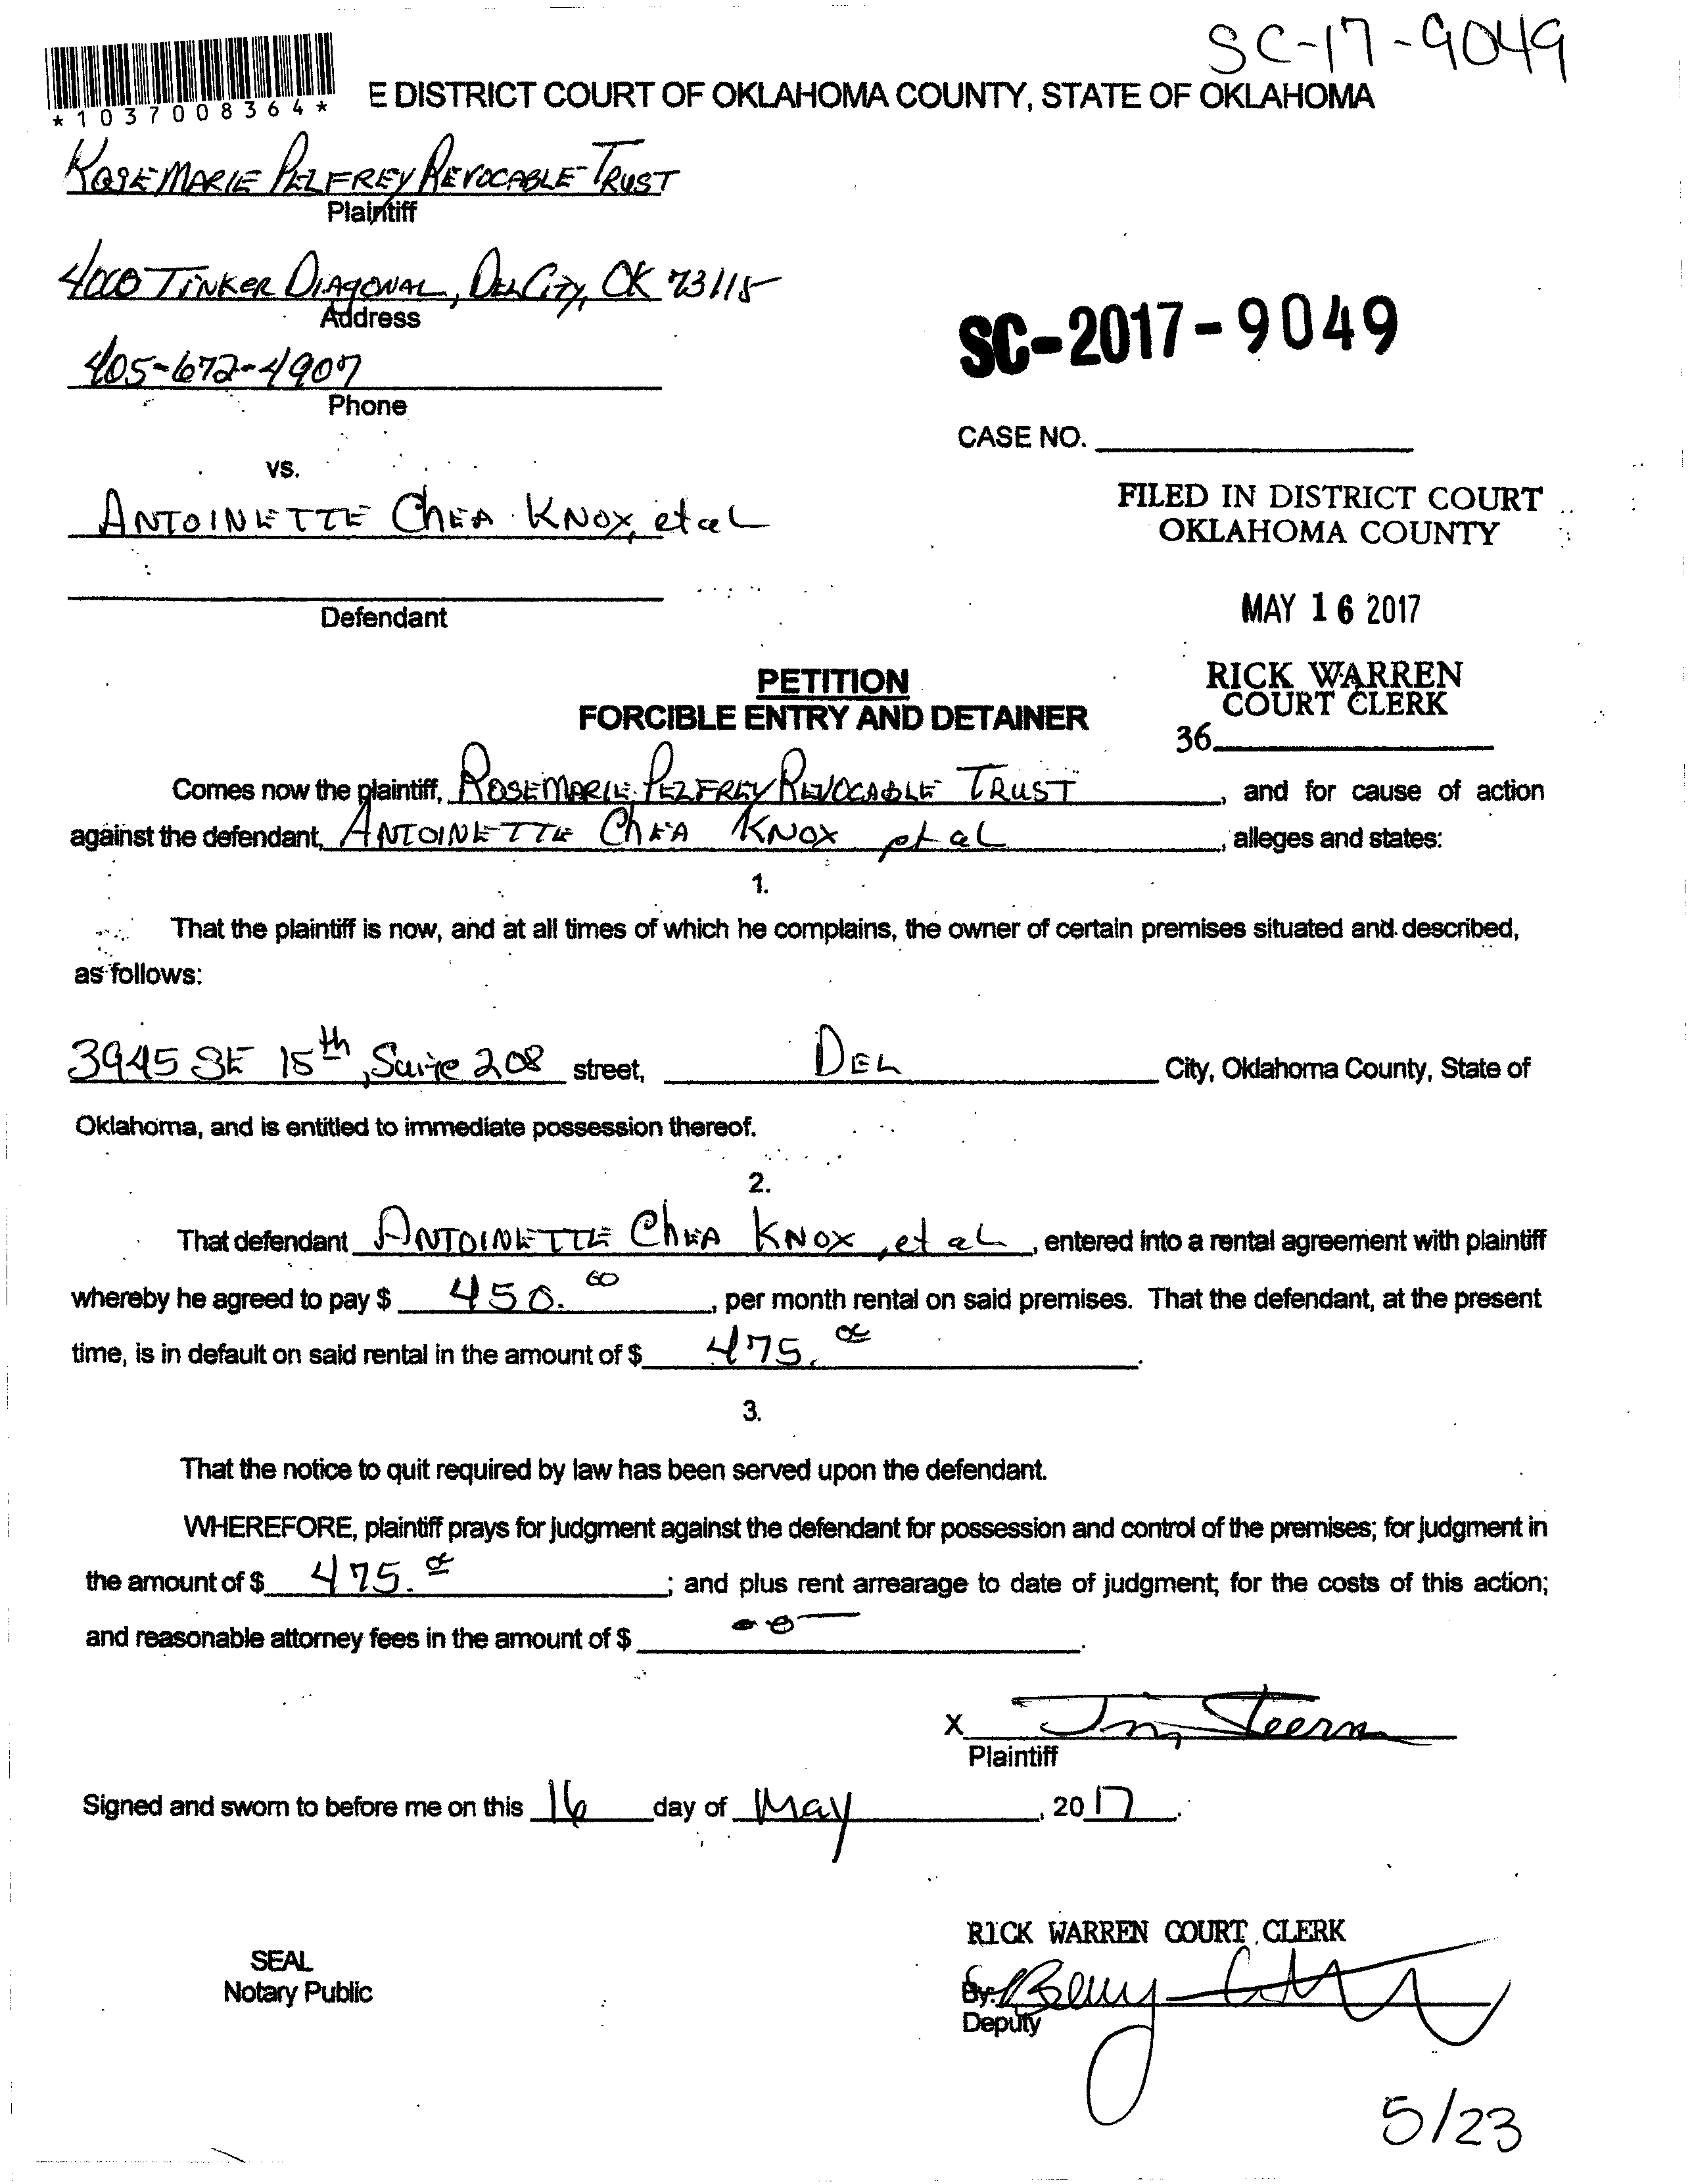 SC-17-9049
*1037008364*
E DISTRICT COURT OF OKLAHOMA COUNTY, STATE OF OKLAHOMA
ROSEMARIE PELFREY REVOCABLE TRUST
Plaintiff
4000 TINKER DIAGONAL, DEL CITY, OK 73115
Address
SC-2017-9049
405-672-4907
Phone
CASE NO.
vs.
ANTOINETTE CHEA KNOX, et al
FILED IN DISTRICT COURT
OKLAHOMA COUNTY
Defendant
MAY 16 2017
PETITION
RICK WARREN
COURT CLERK
FORCIBLE ENTRY AND DETAINER
36
Comes now the plaintiff, ROSEMARIE PELFREY REVOCABLE TRUST, and for cause of action
against the defendant, ANTOINETTE CHEA KNOX et al, alleges and states:
1.
That the plaintiff is now, and at all times of which he complains, the owner of certain premises situated and described,
as follows:
3945 SE 15th, Suite 208 street, DEL City, Oklahoma County, State of
Oklahoma, and is entitled to immediate possession thereof.
2.
That defendant ANTOINETTE CHEA KNOX, et al, entered into a rental agreement with plaintiff
whereby he agreed to pay $ 450.00, per month rental on said premises. That the defendant, at the present
time, is in default on said rental in the amount of $ 475.00.
3.
That the notice to quit required by law has been served upon the defendant.
WHEREFORE, plaintiff prays for judgment against the defendant for possession and control of the premises; for judgment in
the amount of $ 475.00; and plus rent arrearage to date of judgment; for the costs of this action;
and reasonable attorney fees in the amount of $ -0-.
X
Plaintiff
Signed and sworn to before me on this 16 day of May, 2017.
RICK WARREN COURT CLERK
SEAL
Notary Public
By:
Deputy
5/23